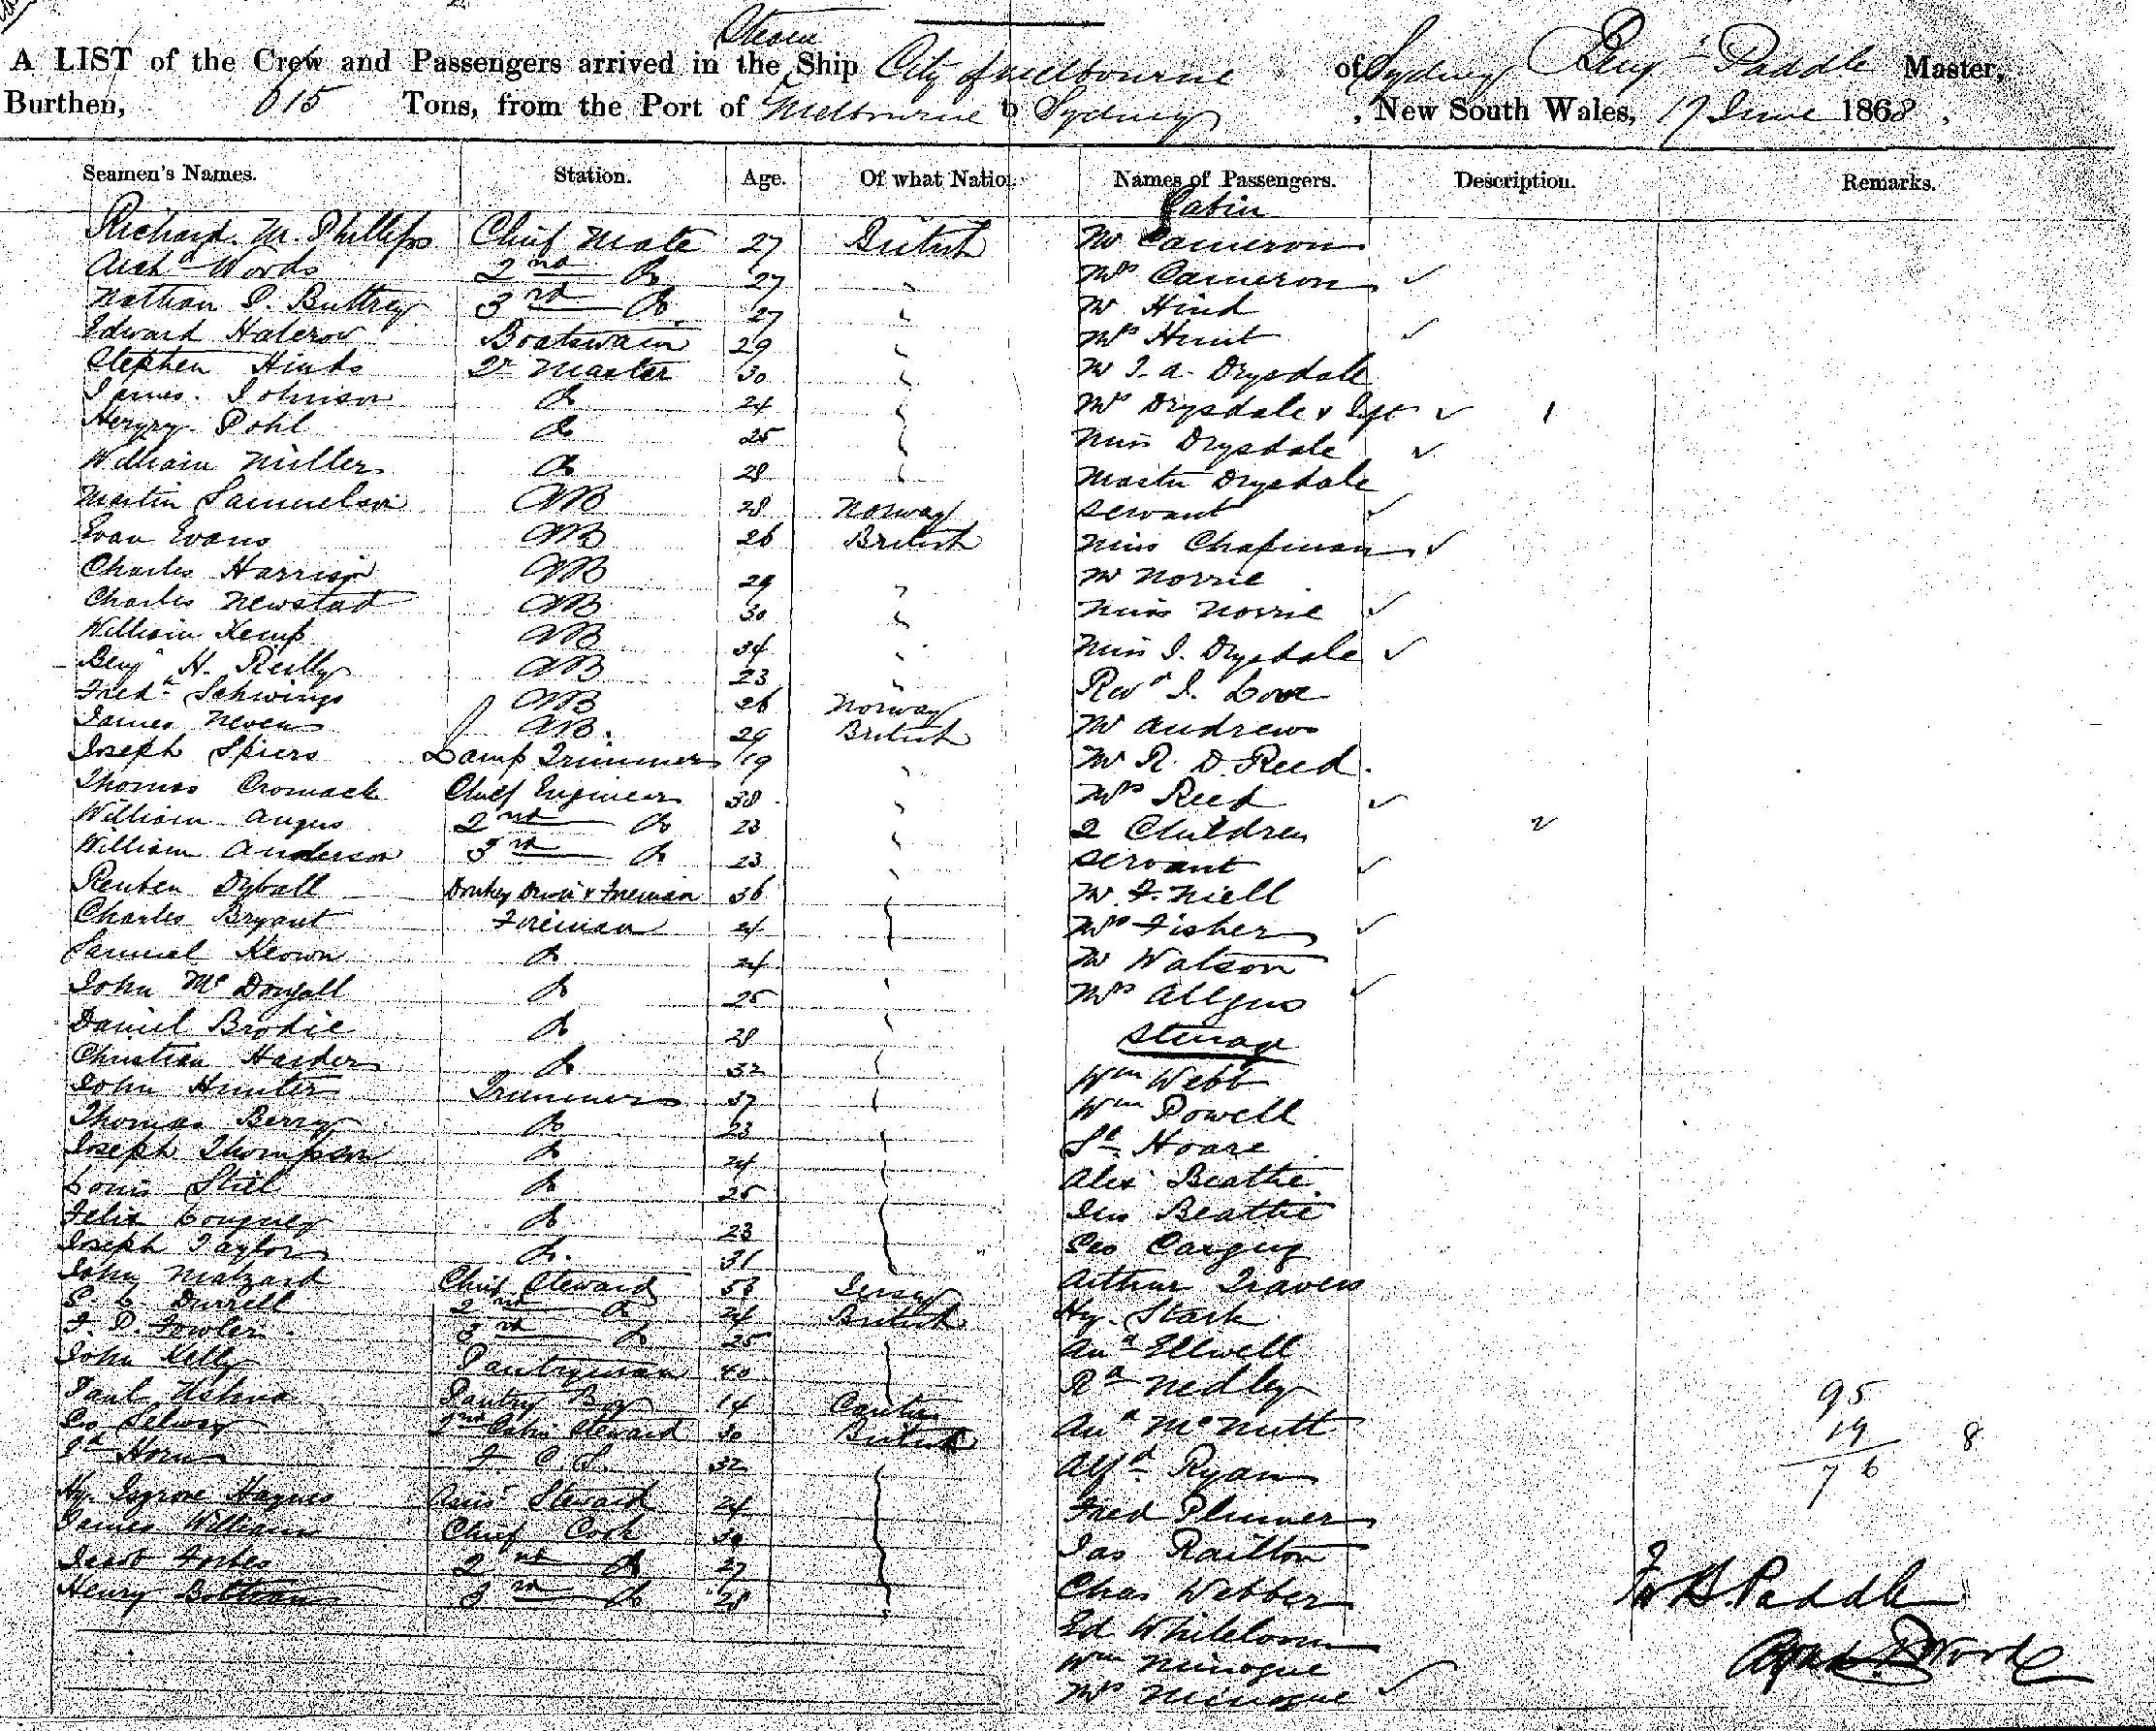 Steam
A LIST of the Crew and Passengers arrived in the Ship City of Melbourne of Sydney Benjn Paddle Master,
Burthen, 615 Tons, from the Port of Melbourne to Sydney, New South Wales, 17 June 1868.
Seamen's Names. Station. Age. Of what Nation. Names of Passengers. Description. Remarks.
Cabin
Richard. M. Phillips Chief Mate 27 British Mr Cameron
Archd Woods 2nd Do 27 " Mrs Cameron ✓
Nathan P. Buttrey 3rd Do 27 " Mr Hind
Edward Halcrow Boatswain 29 " Mrs Hunt ✓
Stephen Hinks Qr Master 30 " Mr J. A. Drysdale
James Johnson Do 24 " Mrs Drysdale & Inft ✓ 1
Henry Pohl Do 25 " Miss Drysdale ✓
William Miller Do 28 " Master Drysdale
Martin Samuelson AB 28 Norway Servant ✓
Evan Evans AB 26 British Miss Chapman ✓
Charles Harrison AB 29 " Mr Norrie
Charles Newstad AB 30 " Miss Norrie ✓
William Kemp AB 34 " Miss J. Drysdale ✓
Benjn H. Reilly AB 23 " Revd J. Love
Fredk Schwings AB 26 Norway Mr Andrews
James Neven AB. 29 British Mr R. D. Reed.
Joseph Spiers Lamp Trimmer 19 " Mrs Reed ✓
Thomas Cromack Chief Engineer 38 " 2 Children 2
William Angus 2nd Do 23 " Servant ✓
William Anderson 3rd Do 23 " Mr F. Niell
Reuben Dyball Donkey Driver & Fireman 36 " Mrs Fisher ✓
Charles Bryant Fireman 21 " Mr Watson
Samuel Keown Do 24 " Mrs Allgus ✓
John McDougall Do 25 " Steerage
Daniel Brodie Do 28 " Wm Webb
Christian Harder Do 32 " Wm Powell
John Hunter Trimmer 37 " Sl Hoare
Thomas Berry Do 23 " Alex Beattie
Joseph Thompson Do 24 " Jas Beattie
Louis Stiel Do 25 " Geo Cargug
Felix Do 23 " Arthur Travers
Joseph Taylor Do. 31 " Hy. Stark
John Malzard Chief Steward 53 Jersey Ann Ellwell
S. C. Durrell 2nd Do 24 British Rd Nedley
F. D. Fowler 3rd Do 25 " And McNutt
John Kelly Pantryman 40 " Alfd Ryan
Paul Pantry Boy 14 Fred Plumer
Geo Selway 2nd Cabin Steward 30 British Jas Railton
Jn Horn F. C. S. 32 " Chas Webber
Hy. Isgrove Haynes Assist Steward 24 " Ed Whiteloom
James Williams Chief Cook 30 " Wm Minogue
Jacob Forbes 2nd Do 27 " Mrs Minogue ✓
Henry 3rd Do 28 "
95
19 8
76
For B. Paddle
Archd Woods